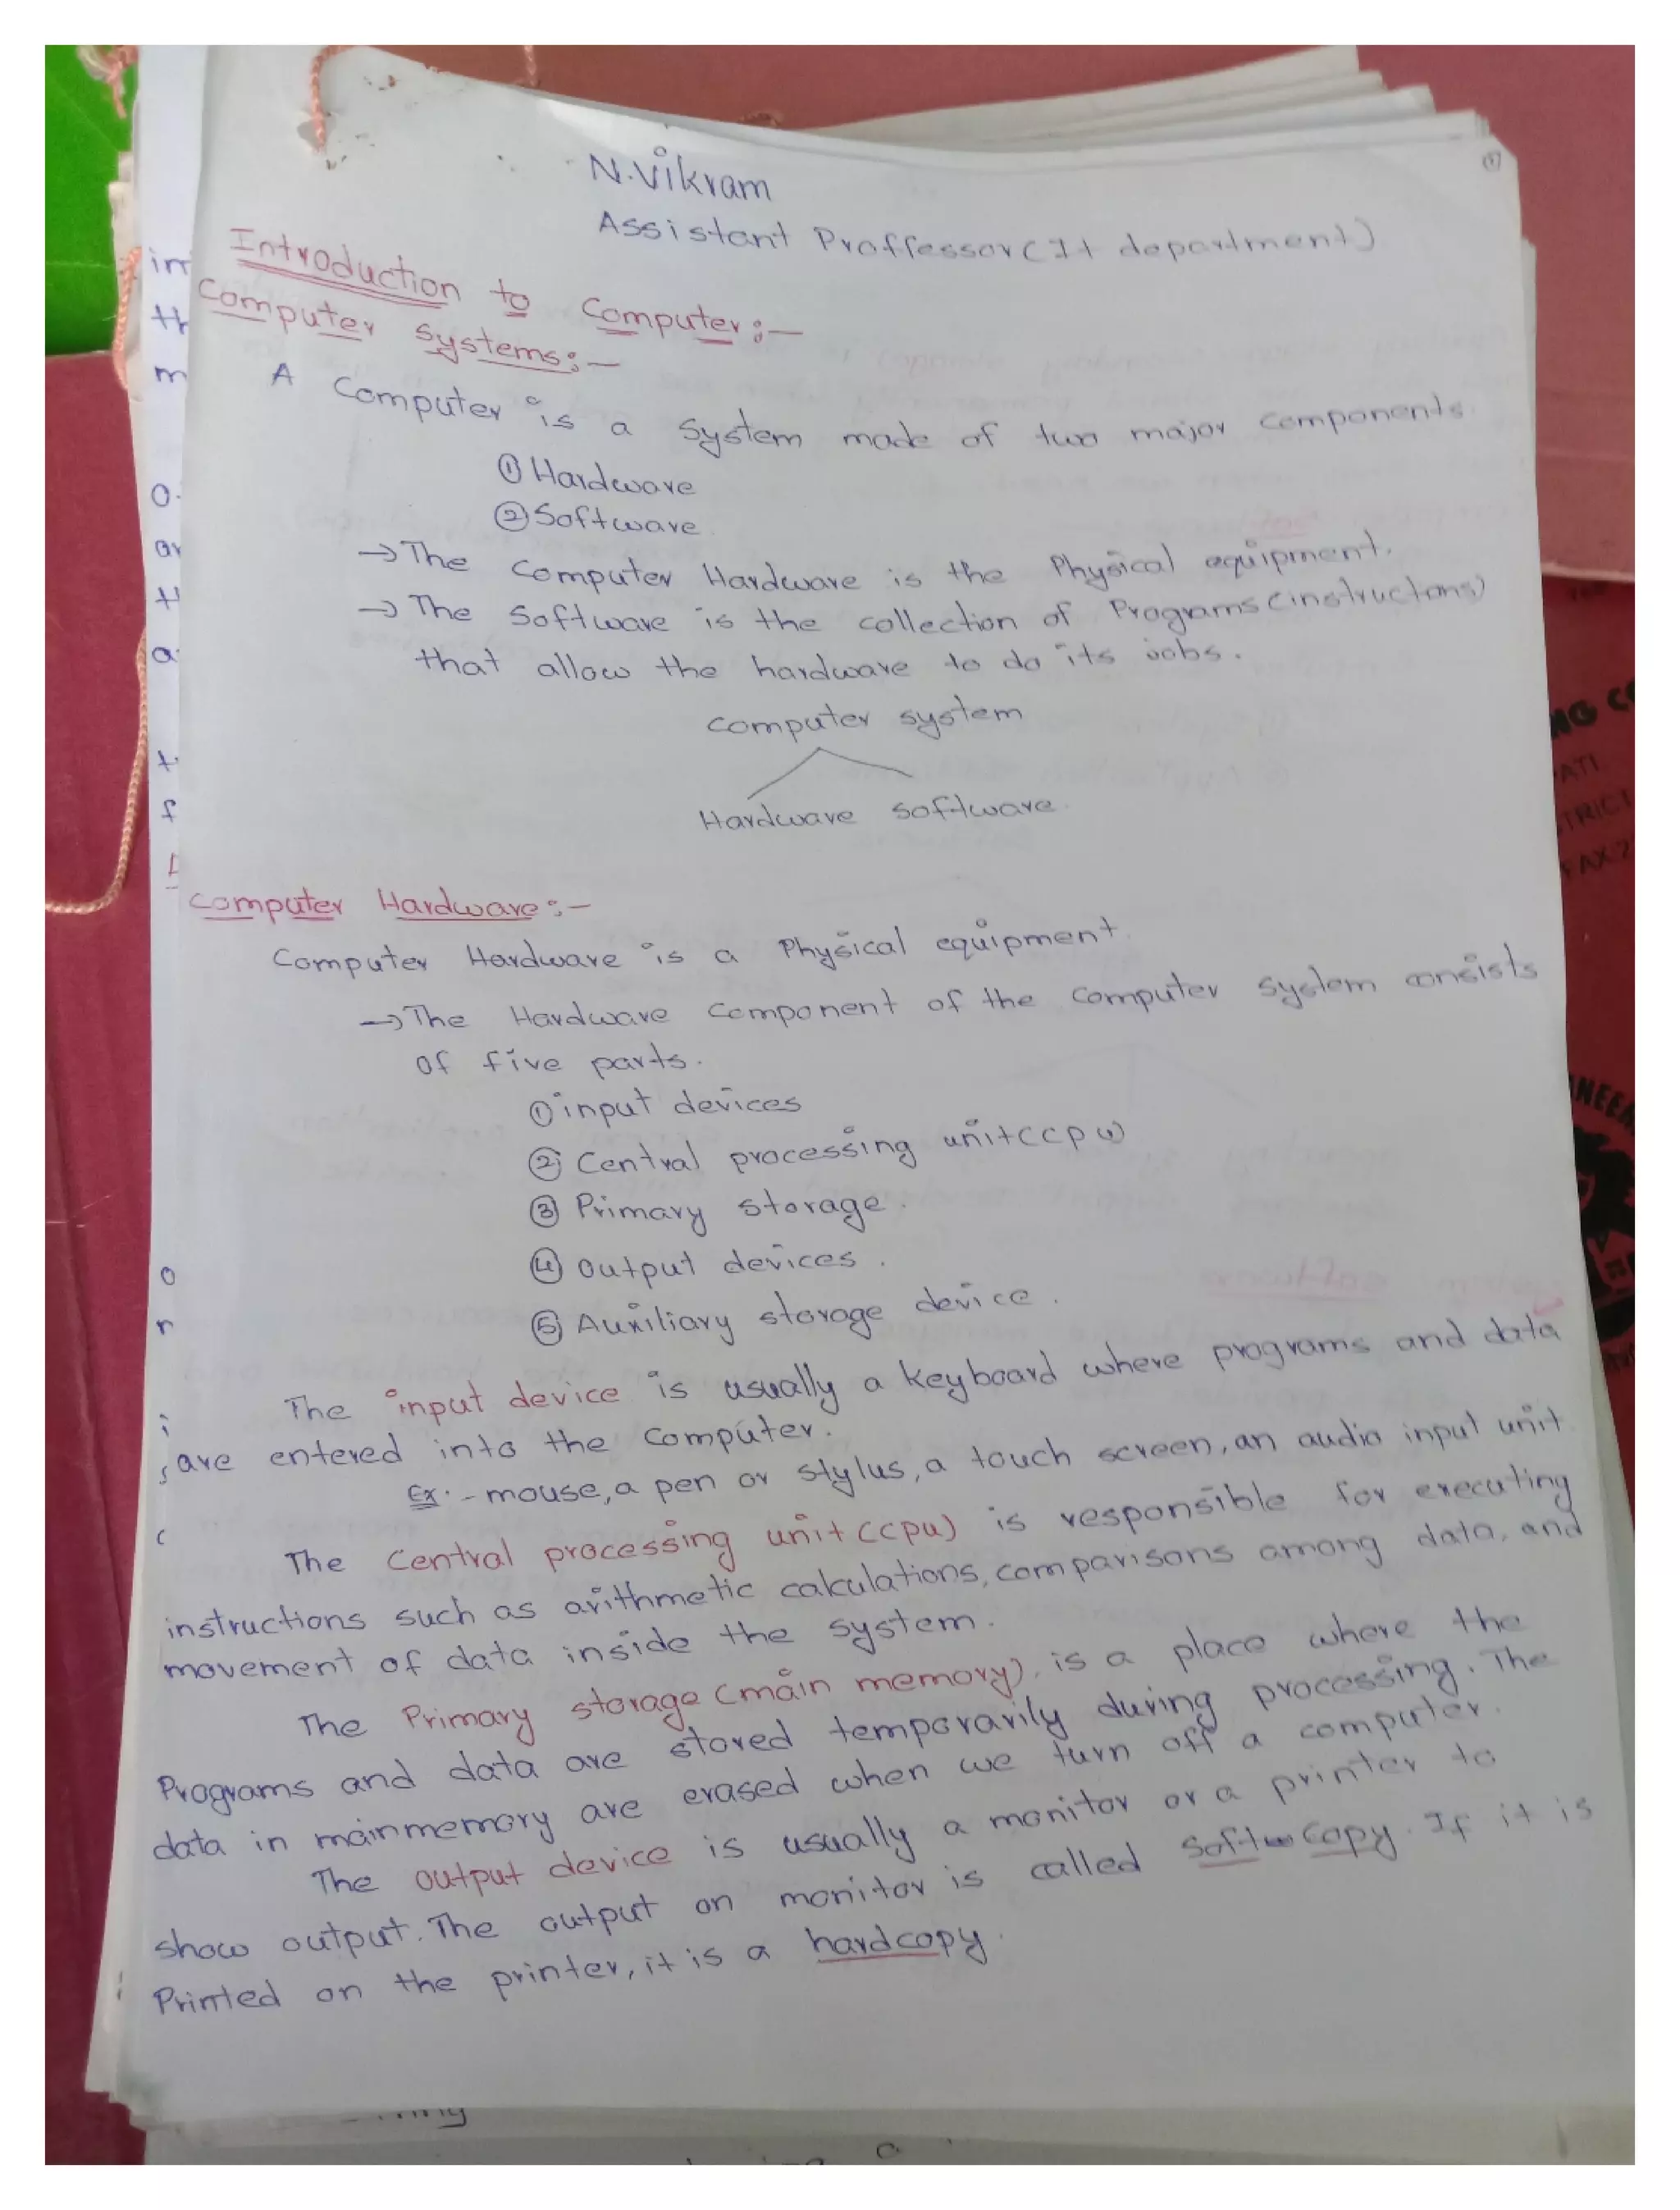 ①
N.Vikram
Assistant Proffessor(It department)
Introduction to Computer:-
Computer Systems:-
A Computer is a System made of two major components.
① Hardware
② Software.
→ The Computer Hardware is the Physical equipment.
→ The Software is the collection of Programs (instructions)
that allow the hardware to do its jobs.
computer system
Hardware software.
Computer Hardware:-
Computer Hardware is a Physical equipment.
→ The Hardware Component of the Computer System consists
of five parts.
① input devices
② Central processing unit(cpu)
③ Primary storage.
④ Output devices.
⑤ Auxiliary storage device.
The input device is usually a keyboard where programs and data
are entered into the computer.
Ex:- mouse, a pen or stylus, a touch screen, an audio input unit
The Central processing unit (cpu) is responsible for executing
instructions such as arithmetic calculations, comparisons among data, and
movement of data inside the system.
The Primary storage (main memory), is a place where the
Programs and data are stored temporarily during processing. The
data in mainmemory are erased when we turn off a computer.
The output device is usually a monitor or a printer to
show output. The output on monitor is called Soft copy. If it is
Printed on the printer, it is a hardcopy.
NG CO
ATI
TRICT
FAX:2
INEERI